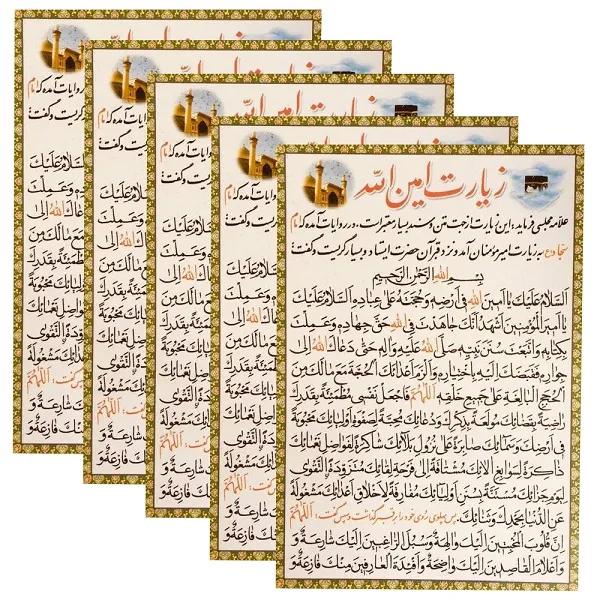 زیارت امین الله
علامه مجلسی فرماید: این زیارت از جهت متن و سند بسیار معتبر است. و در روایات آمده که امام
سجاد(ع) به زیارت امیرمؤمنان آمد و نزد قبر آن حضرت ایستاد و بسیار گریست و گفت:
بِسْمِ اللهِ الرَّحْمٰنِ الرَّحِيمِ
اَلسَّلامُ عَلَيْكَ يا اَمينَ اللهِ فى اَرْضِهِ وَ حُجَّتَهُ عَلى عِبادِهِ اَلسَّلامُ عَلَيْكَ
يا اَميرَ الْمُؤْمِنينَ اَشْهَدُ اَنَّكَ جاهَدْتَ فِى اللهِ حَقَّ جِهادِهِ وَ عَمِلْتَ
بِكِتابِهِ وَ اتَّبَعْتَ سُنَنَ نَبِيِّهِ صَلَّى اللهُ عَلَيْهِ وَ الِهِ حَتّى دَعاكَ اللهُ اِلى
جِوارِهِ فَقَبَضَكَ اِلَيْهِ بِاخْتِيارِهِ وَ اَلْزَمَ اَعْدآئَكَ الْحُجَّةَ مَعَ مالَكَ مِنَ
الْحُجَجِ الْبالِغَةِ عَلى جَميعِ خَلْقِهِ اَللّهُمَّ فَاجْعَلْ نَفْسى مُطْمَئِنَّةً بِقَدَرِكَ
راضِيَةً بِقَضآئِكَ مُولَعَةً بِذِكْرِكَ وَ دُعآئِكَ مُحِبَّةً لِصَفْوَةِ اَوْلِيآئِكَ مَحْبُوبَةً
فى اَرْضِكَ وَ سَمآئِكَ صابِرَةً عَلى نُزُولِ بَلآئِكَ شاكِرَةً لِفَواضِلِ نَعْمآئِكَ
ذاكِرَةً لِسَوابِغِ الآئِكَ مُشْتاقَةً اِلى فَرْحَةِ لِقآئِكَ مُتَزَوِّدَةً التَّقْوى
لِيَوْمِ جَزآئِكَ مُسْتَنَّةً بِسُنَنِ اَوْلِيآئِكَ مُفارِقَةً لِاَخْلاقِ اَعْدآئِكَ مَشْغُولَةً
عَنِ الدُّنْيا بِحَمْدِكَ وَ ثَنآئِكَ. پس پهلوی روی خود را بر قبر گذاشت و پس گفت: اَللّهُمَّ
اِنَّ قُلُوبَ الْمُخْبِتينَ اِلَيْكَ والِهَةٌ وَ سُبُلَ الرّاغِبينَ اِلَيْكَ شارِعَةٌ وَ
وَ اَعْلامَ الْقاصِدينَ اِلَيْكَ واضِحَةٌ وَ اَفْئِدَةَ الْعارِفينَ مِنْكَ فازِعَةٌ وَ